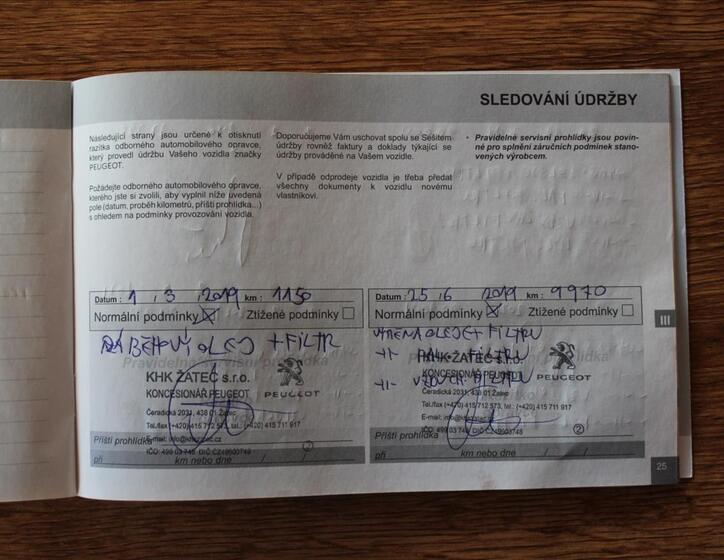 SLEDOVÁNÍ ÚDRŽBY
Následující strany jsou určené k otisknutí
razítka odborného automobilového opravce,
který provedl údržbu Vašeho vozidla značky
PEUGEOT.
Požádejte odborného automobilového opravce,
kterého jste si zvolili, aby vyplnil níže uvedená
pole (datum, proběh kilometrů, příští prohlídka...)
s ohledem na podmínky provozování vozidla.
Doporučujeme Vám uschovat spolu se Sešitem
údržby rovněž faktury a doklady týkající se
údržby prováděné na Vašem vozidle.
V případě odprodeje vozidla je třeba předat
všechny dokumenty k vozidlu novému
vlastníkovi.
• Pravidelné servisní prohlídky jsou povin-
né pro splnění záručních podmínek stano-
vených výrobcem.
Datum : 1 / 3 / 2019 km : 1150
Normální podmínky Ztížené podmínky
ZÁBĚHOVÝ OLEJ + FILTR
Pravidelná servisní prohlídka
KHK ŽATEC s.r.o.
KONCESIONÁŘ PEUGEOT
PEUGEOT
Čeradická 2031, 438 01 Žatec
Tel./fax (+420) 415 712 573, tel.: (+420) 415 711 917
E-mail: info@khkzatec.cz
Příští prohlídka
IČO: 499 03 748 DIČ CZ49903748
při km nebo dne / /
Datum : 25 / 6 2019 km : 9970
Normální podmínky Ztížené podmínky
VÝMĚNA OLEJE + FILTRU
-||- PAL. FILTRU
KHK ŽATEC s.r.o.
-||- VZDUCH. FILTRU
KONCESIONÁŘ PEUGEOT
PEUGEOT
Čeradická 2031, 438 01 Žatec
Tel./fax (+420) 415 712 573, tel.: (+420) 415 711 917
E-mail: info@khkzatec.cz
Příští prohlídka
IČO: 499 03 748 DIČ CZ49903748
2
při km nebo dne / /
III
25